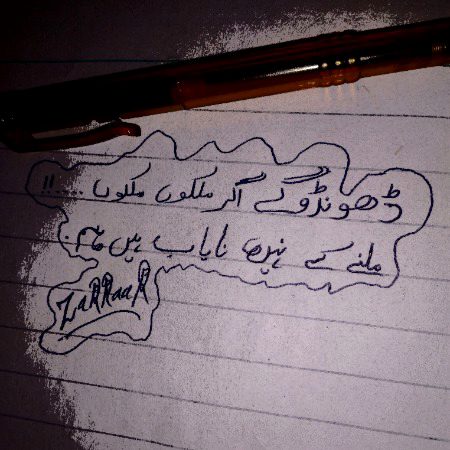 ڈھونڈو گے اگر ملکوں ملکوں ... !!
ملنے کے نہیں نایاب ہیں ہم .
ZaRRaaR